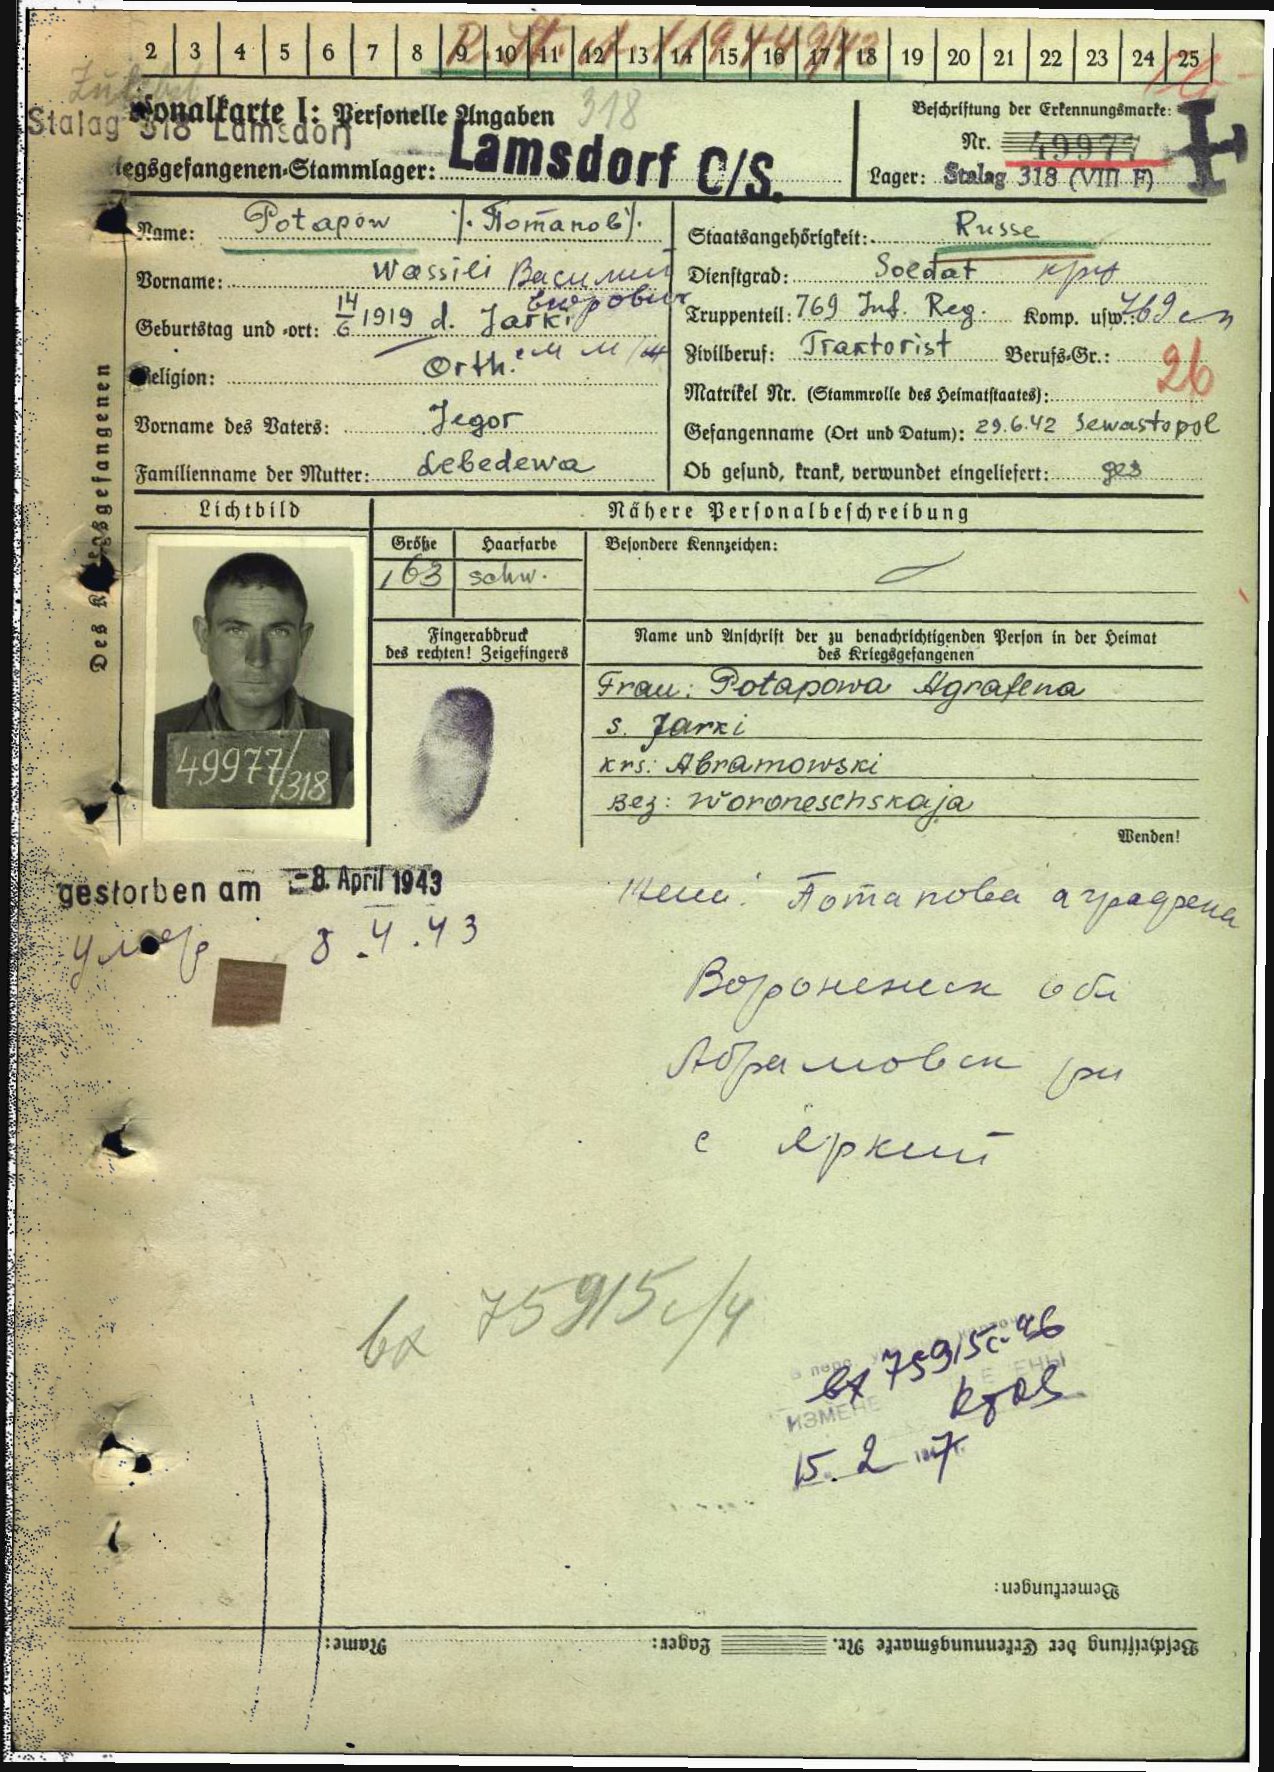 2 3 4 5 6 7 8 9 10 11 12 13 14 15 16 17 18 19 20 21 22 23 24 25
318
onalkarte I: Personelle Angaben
Stalag 318 Lamsdorf
iegsgefangenen-Stammlager: Lamsdorf C/S.
Beschriftung der Erkennungsmarke:
Nr. 49977
Lager: Stalag 318 (VIII F)
Des K gsgefangenen
Name: Potapow /. Потапов/.
Vorname: Wassili Василий
Егорович
Geburtstag und -ort: 14/6 1919 d. Jarki
Religion: Orth.
Vorname des Vaters: Jegor
Familienname der Mutter: Lebedewa
Staatsangehörigkeit: Russe
Dienstgrad: Soldat кр
Truppenteil: 769 Inf. Reg. Komp. usw.: 769 сп
Zivilberuf: Traktorist Berufs-Gr.: 26
Matrikel Nr. (Stammrolle des Heimatstaates):
Gefangenname (Ort und Datum): 29.6.42 Sewastopol
Ob gesund, krank, verwundet eingeliefert: ges
Lichtbild
Nähere Personalbeschreibung
Größe Haarfarbe Besondere Kennzeichen:
163 schw.
Fingerabdruck
des rechten! Zeigefingers
Name und Anschrift der zu benachrichtigenden Person in der Heimat
des Kriegsgefangenen
Frau: Potapowa Agrafena
s. Jarki
krs: Abramowski
Bez: Woroneschskaja
49977/318
Wenden!
gestorben am -8. April 1943
умер 8.4.43
жена: Потапова аграфена
Воронежск обл
Абрамовск рн
с Яркий
вх 75915с/ч
вх 75915с-46
ИЗМЕНЕ
15. 2 7
Bemerkungen:
Beschriftung der Erkennungsmarke Nr. Lager: Name: